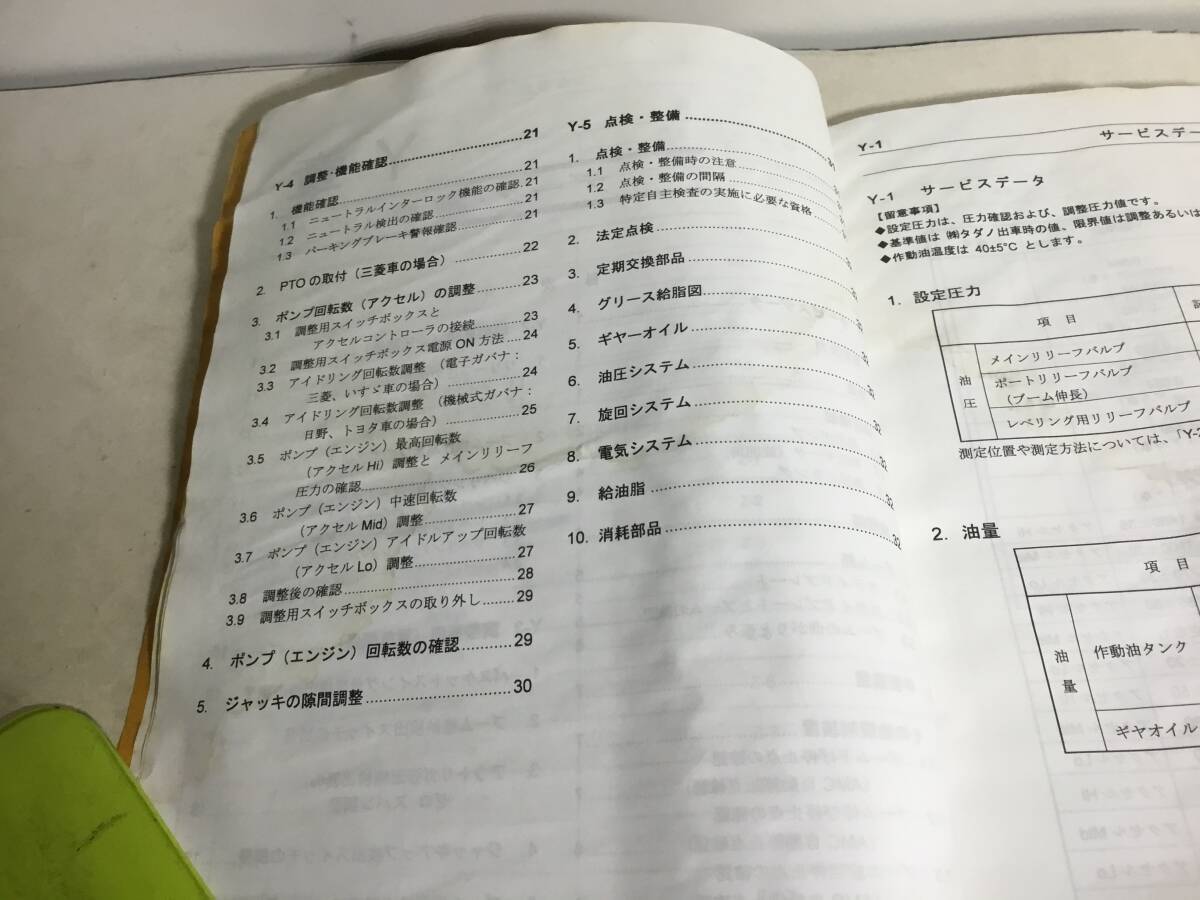 Y-4 調整・機能確認 21
1. 機能確認 21
1.1 ニュートラルインターロック機能の確認 21
1.2 ニュートラル検出の確認 21
1.3 パーキングブレーキ警報確認 21
2. PTOの取付（三菱車の場合） 22
3. ポンプ回転数（アクセル）の調整 23
3.1 調整用スイッチボックスと
アクセルコントローラの接続 23
3.2 調整用スイッチボックス電源 ON 方法 24
3.3 アイドリング回転数調整 （電子ガバナ：
三菱、いすゞ車の場合） 24
3.4 アイドリング回転数調整 （機械式ガバナ：
日野、トヨタ車の場合） 25
3.5 ポンプ（エンジン）最高回転数
（アクセル Hi）調整と メインリリーフ
圧力の確認 26
3.6 ポンプ（エンジン）中速回転数
（アクセル Mid）調整 27
3.7 ポンプ（エンジン）アイドルアップ回転数
（アクセル Lo）調整 27
3.8 調整後の確認 28
3.9 調整用スイッチボックスの取り外し 29
4. ポンプ（エンジン）回転数の確認 29
5. ジャッキの隙間調整 30
Y-5 点検・整備
1. 点検・整備
1.1 点検・整備時の注意
1.2 点検・整備の間隔
1.3 特定自主検査の実施に必要な資格
2. 法定点検
3. 定期交換部品
4. グリース給脂図
5. ギヤーオイル
6. 油圧システム
7. 旋回システム 32
8. 電気システム 32
9. 給油脂 32
10. 消耗部品 32
Y-1 サービスデー
Y-1 サービスデータ
【留意事項】
◆設定圧力は、圧力確認および、調整圧力値です。
◆基準値は ㈱タダノ出車時の値、限界値は調整あるいは
◆作動油温度は 40±5℃ とします。
1. 設定圧力
項 目
油圧
メインリリーフバルブ
ポートリリーフバルブ
（ブーム伸長）
レベリング用リリーフバルブ
測定位置や測定方法については、「Y-
2. 油量
項 目
油量
作動油タンク
ギヤオイル